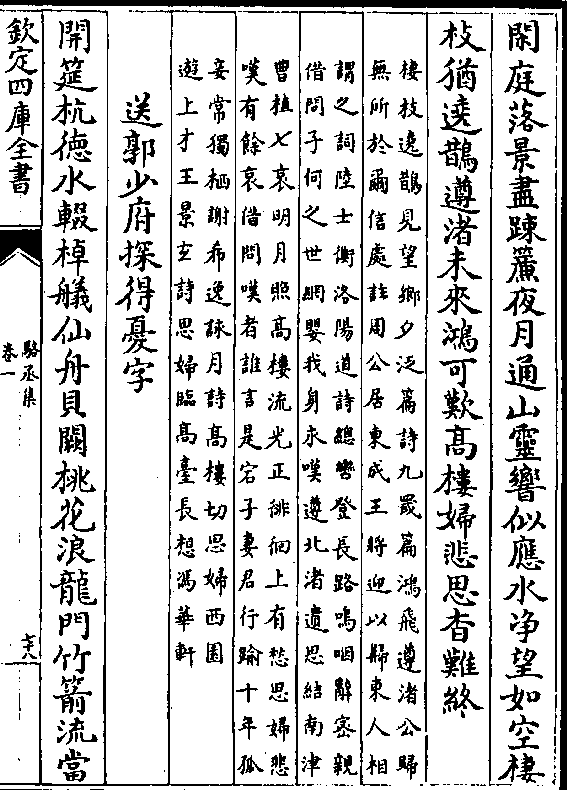 閑庭落景盡踈簾夜月通山靈響似應水净望如空棲
枝猶遶鵲遵渚未來鴻可歎髙樓婦悲思杳難終
棲枝遶鵲見望鄉夕泛篇詩九罭篇鴻飛遵渚公歸
無所於爾信處註周公居東成王將迎以歸東人相
謂之詞陸士衡洛陽道詩緫轡登長路嗚咽辭宻親
借問子何之世網嬰我身永嘆遵北渚遺思結南津
曹植七哀明月照髙樓流光正徘徊上有愁思婦悲
嘆有餘哀借問嘆者誰言是宕子妻君行踰十年孤
妾常獨栖謝希逸詠月詩髙樓切思婦西園
遊上才王景玄詩思婦臨髙臺長想馮華軒
送郭少府探得憂字
開筵枕德水輟棹艤仙舟貝闕桃花浪龍門竹箭流當
欽定四庫全書
駱丞集
卷一